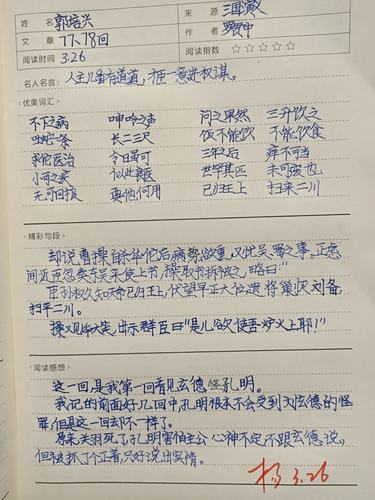 姓名 郭培兴 来源 三国演义
文章 77、78回 作者 罗贯中
阅读时间 3.26 阅读指数 ☆☆☆☆☆
名人名言：
‹优美词汇›
不下之病 呻吟之声 问之果然 三升饮之
吐蛇一条 长二三尺 饭不能饮 不能饮食
求佗医治 今日虽可 三年之后 痒不可当
小可之事 似此良医 世罕其匹 未可废也
无可回报 要他何用 已归王上 扫平二川
‹精彩句段›
却说曹操自杀华佗后，病势愈重，又忧吴、蜀之事。正虑
间，近臣忽奏东吴遣使上书，操取书拆视之，略曰：“
臣孙权久知天命已归王上，伏望早正大位，遣将剿灭刘备，
扫平二川。
操观毕大笑，出示群臣曰“是儿欲使吾炉火上耶！”
‹阅读感想›
这一回是我第一回看见玄德怪孔明。
我记的前面好几回中，孔明根本不会受到刘玄德的怪
罪，但是这一回却不一样了。
原来关羽死了，孔明害怕主公心神不定，不跟玄德说，
但被抓了个正着，只好说出实情。
杨 3.26